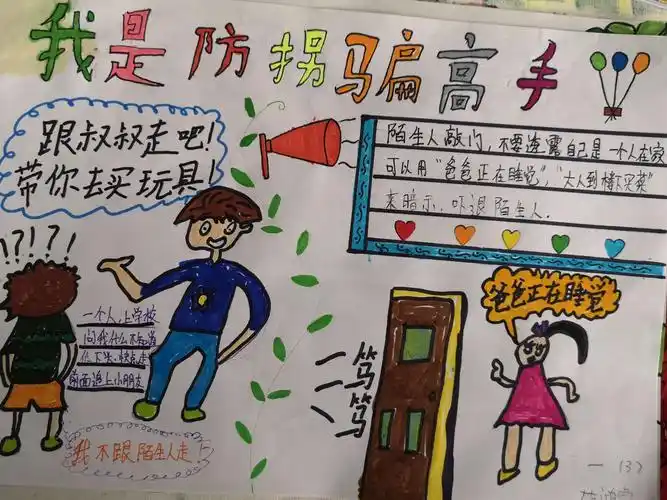 我是防拐骗高手
跟叔叔走吧!
带你去买玩具!
陌生人敲门,不要透露自己是一个人在家
可以用“爸爸正在睡觉”,“大人到楼下买菜”
来暗示、吓退陌生人.
!?!?!!
一个人上学校
问我什么不知道
前面追上小朋友
我不跟陌生人走
爸爸正在睡觉
一笃
笃
一 13?